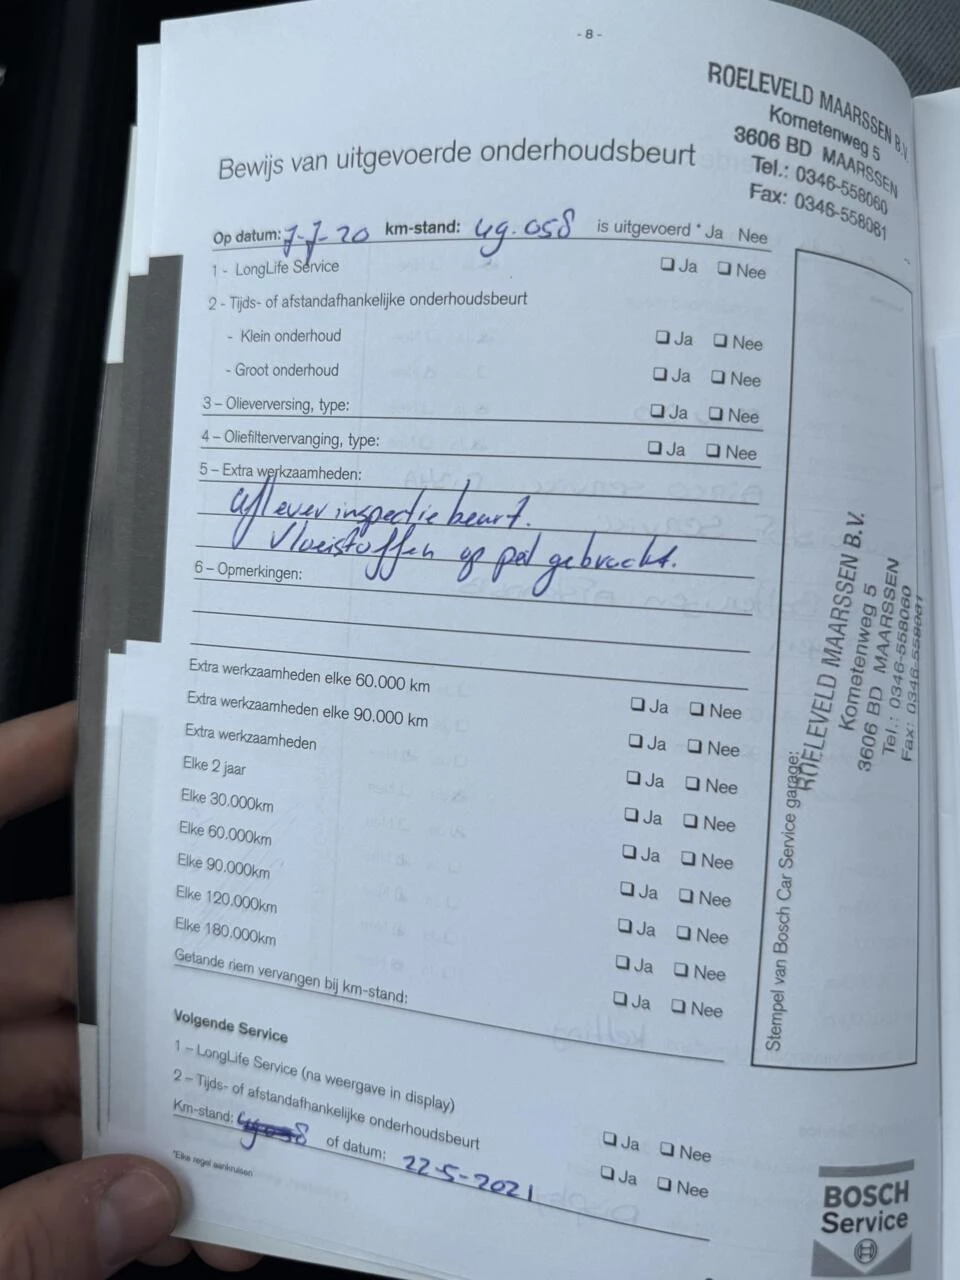 - 8 -
ROELEVELD MAARSSEN B.V.
Kometenweg 5
3606 BD MAARSSEN
Tel.: 0346-558060
Fax: 0346-558061
Bewijs van uitgevoerde onderhoudsbeurt
Op datum: 7-7-20 km-stand: 49.058 is uitgevoerd * Ja Nee
1 - LongLife Service ❑ Ja ❑ Nee
2 - Tijds- of afstandafhankelijke onderhoudsbeurt
- Klein onderhoud ❑ Ja ❑ Nee
- Groot onderhoud ❑ Ja ❑ Nee
3 – Olieverversing, type: ❑ Ja ❑ Nee
4 – Oliefiltervervanging, type: ❑ Ja ❑ Nee
5 – Extra werkzaamheden:
aflever inspectie beurt.
Vloeistoffen op peil gebracht.
6 – Opmerkingen:
Extra werkzaamheden elke 60.000 km ❑ Ja ❑ Nee
Extra werkzaamheden elke 90.000 km ❑ Ja ❑ Nee
Extra werkzaamheden ❑ Ja ❑ Nee
Elke 2 jaar ❑ Ja ❑ Nee
Elke 30.000km ❑ Ja ❑ Nee
Elke 60.000km ❑ Ja ❑ Nee
Elke 90.000km ❑ Ja ❑ Nee
Elke 120.000km ❑ Ja ❑ Nee
Elke 180.000km ❑ Ja ❑ Nee
Getande riem vervangen bij km-stand:
Stempel van Bosch Car Service garage:
ROELEVELD MAARSSEN B.V.
Kometenweg 5
3606 BD MAARSSEN
Tel.: 0346-558060
Fax: 0346-558061
Volgende Service
1 – LongLife Service (na weergave in display) ❑ Ja ❑ Nee
2 – Tijds- of afstandafhankelijke onderhoudsbeurt ❑ Ja ❑ Nee
Km-stand: of datum: 22-5-2021
*Elke regel aankruisen
BOSCH
Service